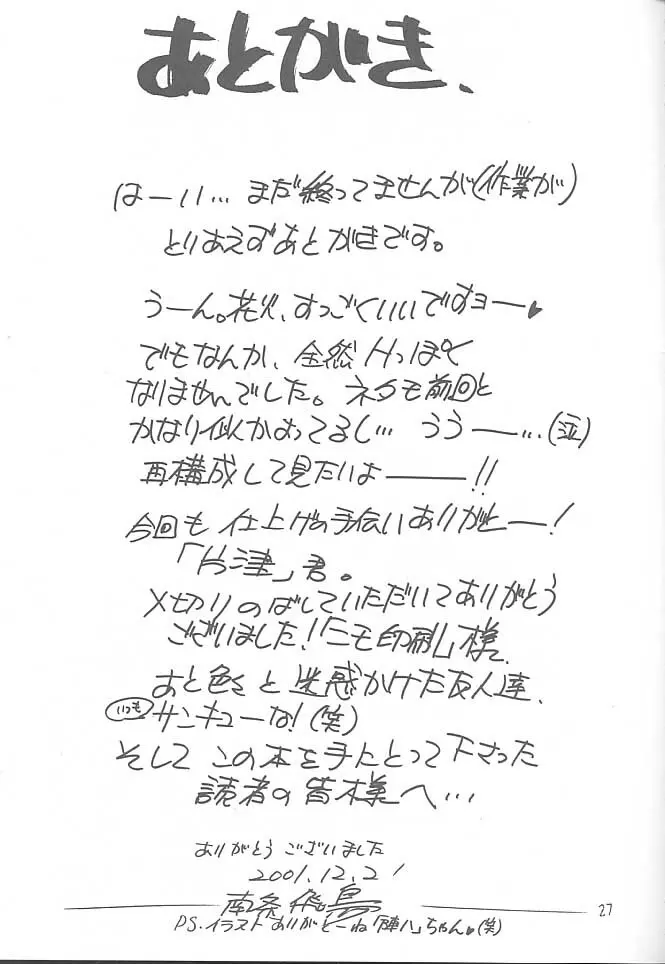 あとがき、
はーい… まだ終ってませんが(作業が)
とりあえずあとがきです。
うーん。花火、すっごくいいですョー♥
でもなんか、全然Hっぽく
なりませんでした。ネタも前回と
かなり似かよってるし… うぅー…(泣)
再構成して見たいよ――!!
今回も 仕上げの手伝いありがとー!
「片津」君。
〆切りのばしていただいてありがとう
ございました!「ニモ印刷」様。
あと色々と迷惑かけた友人達、
いつも サンキューな!(笑)
そして この本を手にとって下さった
読者の皆様へ…
ありがとう ございました
2001.12.21
南条飛鳥
27
PS.イラスト ありがとーね「陣八」ちゃん♥(笑)